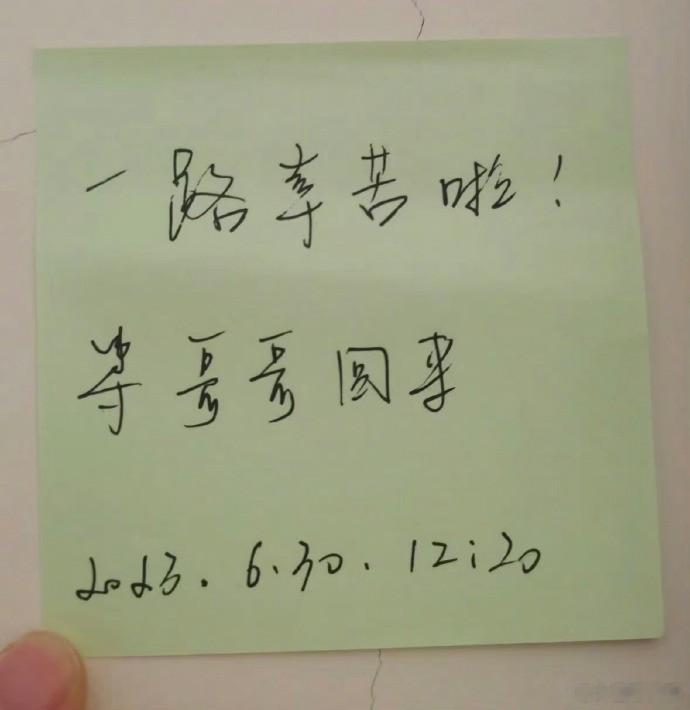 一路辛苦啦！
等哥哥回来
2023.6.30.12:20